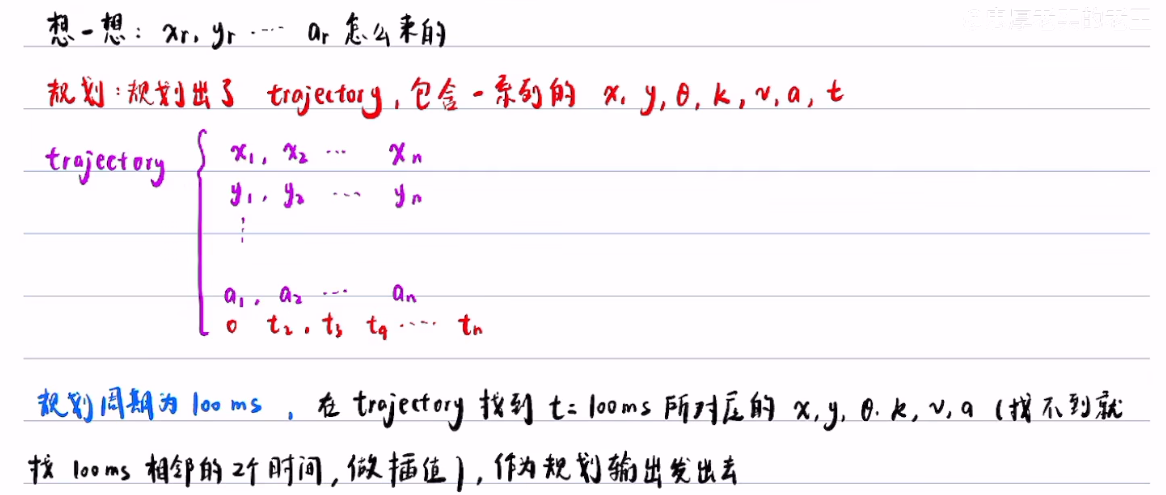 想一想: xr, yr ⋯ ar 怎么来的
规划: 规划出了 trajectory, 包含一系列的 x, y, θ, k, v, a, t
trajectory { x1, x2 ⋯ xn
y1, y2 ⋯ yn
⋮
a1, a2 ⋯ an
0 t2, t3 t4 ⋯ tn
规划周期为 100 ms , 在 trajectory 找到 t=100ms 所对应的 x, y, θ, k, v, a (找不到就
找 100ms 相邻的2个时间, 做插值), 作为规划输出发出去